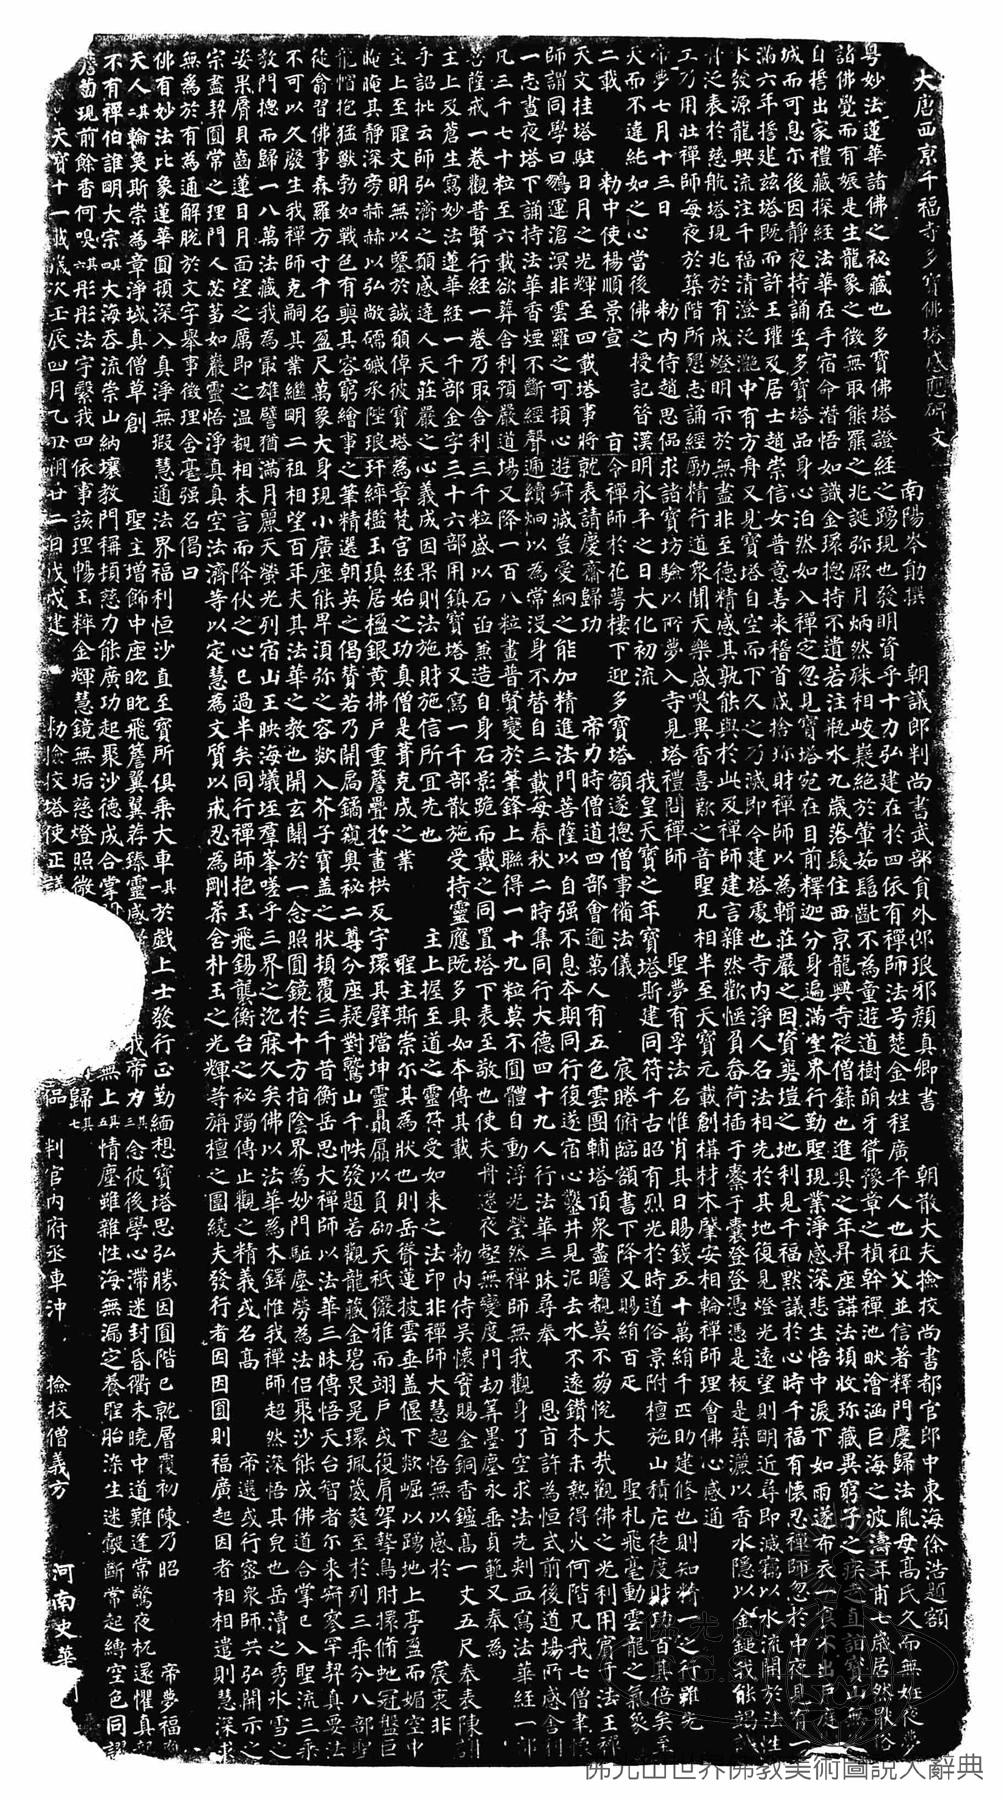 大唐西京千福寺多寶佛塔感應碑文 南陽岑勛撰 朝議郎判尚書武部員外郎琅邪顏真卿書 朝散大夫撿挍尚書都官郎中東海徐浩題額
粤妙法蓮華諸佛之秘藏也多寶佛塔證經之踴現也發明資乎十力弘建在於四依有禪師法号楚金姓程廣平人也祖父並信著釋門慶歸法胤母高氏久而無姙夜夢
諸佛覺而有娠是生龍象之徵無取熊羆之兆誕弥厥月炳然殊相岐嶷絕於葷茹髫齔不爲童遊道樹萌牙聳豫章之楨幹禪池畎澮涵巨海之波濤年甫七歲居然厭俗
自誓出家禮藏探經法華在手宿命潛悟如識金環揔持不遺若注瓶水九歲落髮住西京龍興寺從僧籙也進具之年昇座講法頓收珍藏異窮子之疾走直詣寶山無化
城而可息尒後因靜夜持誦至多寶塔品身心泊然如入禪定忽見寶塔宛在目前釋迦分身遍滿空界行勤聖現業淨感深悲生悟中淚下如雨遂布衣一食不出戶庭期
滿六年誓建茲塔既而許王瓘及居士趙崇信女普意善來稽首咸捨珍財禪師以爲輯莊嚴之因資爽塏之地利見千福默議於心時千福有懷忍禪師忽於中夜見有一
水發源龍興流注千福清澄泛灧中有方舟又見寶塔自空而下久之乃滅即今建塔處也寺內淨人名法相先於其地復見燈光遠望則明近尋即滅竊以水流開於法性
舟泛表於慈航塔現兆於有成燈明示於無盡非至德精感其孰能與於此及禪師建言雜然歡愜負畚荷插于橐于囊登登憑憑是板是築灑以香水隱以金鎚我能竭誠
工乃用壯禪師每夜於築階所懇志誦經勵精行道衆聞天樂咸嗅異香喜歎之音聖凡相半至天寶元載創構材木肇安相輪禪師理會佛心感通
帝夢七月十三日 敕內侍趙思侃求諸寶坊驗以所夢入寺見塔禮問禪師 聖夢有孚法名惟肖其日賜錢五十萬絹千匹助建修也則知精一之行雖先
天而不違純如之心當後佛之授記昔漢明永平之日大化初流 我皇天寶之年寶塔斯建同符千古昭有烈光於時道俗景附檀施山積庀徒度財功百其倍矣至
二載 敕中使楊順景宣 旨令禪師於花萼樓下迎多寶塔額遂揔僧事備法儀 宸睠俯臨額書下降又賜絹百疋 聖札飛毫動雲龍之氣象
天文挂塔駐日月之光輝至四載塔事將就表請慶齋歸功 帝力時僧道四部會逾萬人有五色雲團輔塔頂衆盡瞻覩莫不崩悅大哉觀佛之光利用賓于法王禪
師謂同學曰鵬運滄溟非雲羅之可頓心遊寂滅豈愛網之能加精進法門菩薩以自强不息本期同行復遂宿心鑿井見泥去水不遠鑽木未熱得火何階凡我七僧聿懷
一志晝夜塔下誦持法華香煙不斷經聲遞續炯以爲常沒身不替自三載每春秋二時集同行大德四十九人行法華三昧尋奉 恩旨許爲恒式前後道場所感舍利
凡三千七十粒至六載欲葬舍利預嚴道場又降一百八粒畫普賢變於筆鋒上聯得一十九粒莫不圓體自動浮光瑩然禪師無我觀身了空求法先刺血寫法華經一部
菩薩戒一卷觀普賢行經一卷乃取舍利三千粒盛以石函兼造自身石影跪而戴之同置塔下表至敬也使夫舟遷夜壑無變度門劫算墨塵永垂貞範又奉爲
主上及蒼生寫妙法蓮華經一千部金字三十六部用鎮寶塔又寫一千部散施受持靈應既多具如本傳其載 敕內侍吳懷實賜金銅香鑪高一丈五尺奉表陳謝
手詔批云師弘濟之願感達人天莊嚴之心義成因果則法施財施信所宜先也 主上握至道之靈符受如來之法印非禪師大慧超悟無以感於 宸衷非
主上至聖文明無以鑒於誠願倬彼寶塔爲章梵宮經始之功真僧是葺克成之業 聖主斯崇尒其爲狀也則岳聳蓮披雲垂蓋偃下欻崛以踴地上亭盈而媚空中
晻晻其靜深旁赫赫以弘敞礝磩承陛琅玕綷檻玉瑱居楹銀黃拂戶重簷疊於畫栱反宇環其壁璫坤靈贔屓以負砌天祇儼雅而翊戶或復肩挐摯鳥肘擐脩虵冠盤巨
龍帽抱猛獸勃如戰色有奭其容窮繪事之筆精選朝英之偈贊若乃開扃鐍窺奧秘二尊分座疑對鷲山千帙發題若觀龍藏金碧炅晃環珮葳蕤至於列三乘分八部聖
徒翕習佛事森羅方寸千名盈尺萬象大身現小廣座能卑須弥之容欻入芥子寶蓋之狀頓覆三千昔衡岳思大禪師以法華三昧傳悟天台智者尒來寂寥罕契真要法
不可以久廢生我禪師克嗣其業繼明二祖相望百年夫其法華之教也開玄關於一念照圓鏡於十方指陰界爲妙門駈塵勞爲法侶聚沙能成佛道合掌已入聖流三乘
教門揔而歸一八萬法藏我爲最雄譬猶滿月麗天螢光列宿山王映海蟻垤羣峯嗟乎三界之沉寐久矣佛以法華爲木鐸惟我禪師超然深悟其皃也岳瀆之秀冰雪之
姿果脣貝齒蓮目月面望之厲即之溫覩相未言而降伏之心已過半矣同行禪師抱玉飛錫襲衡台之秘躅傳止觀之精義或名高 帝選或行密衆師共弘開示之
宗盡契圓常之理門人苾芻如巖靈悟淨真真空法濟等以定慧爲文質以戒忍爲剛柔含朴玉之光輝等旃檀之圍繞夫發行者因因圓則福廣起因者相相遣則慧深求
無爲於有爲通解脫於文字舉事徵理含毫强名偈曰
佛有妙法比象蓮華圓頓深入真淨無瑕慧通法界福利恒沙直至寶所俱乘大車其一於戲上士發行正勤緬想寶塔思弘勝因圓階已就層覆初陳乃昭 帝夢福應
天人其二輪奐斯崇爲章淨域真僧草創 聖主增飾中座眈眈飛簷翼翼荐臻靈感歸我帝力其三念彼後學心滯迷封昏衢未曉中道難逢常驚夜杌還懼真龍
不有禪伯誰明大宗其四大海吞流崇山納壤教門稱頓慈力能廣功起聚沙德成合掌無上其五情塵雖雜性海無漏定養聖胎染生迷鷇斷常起縛空色同謬
薝蔔現前餘香何嗅其六彤彤法宇繄我四依事該理暢玉粹金輝慧鏡無垢慈燈照微歸其七
天寶十一載歲次壬辰四月乙丑朔廿二日戊戌建 敕撿挍塔使正議 侃 判官內府丞車沖 撿挍僧義方 河南史華
佛光山世界佛教美術圖說大辭典